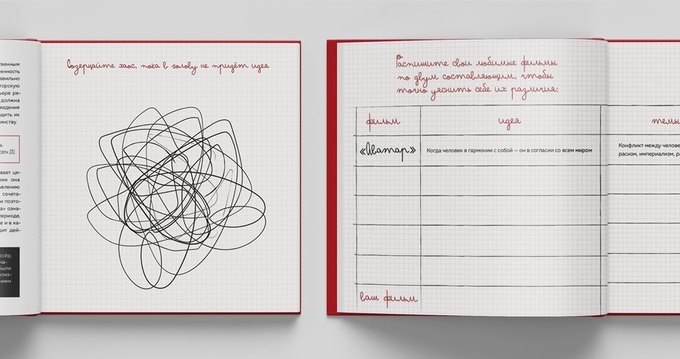 ственным
енность
авильно
торскую
ре-
должна
ведения
одить их
инству.
вает це-
она
авлению
сочета-
и поэто-
озна-
периоде,
е и в ка-
дит дей-
ссёр,
на-
были
нием
Созерцайте хаос, пока в голову не придёт идея
Распишите свои любимые фильмы
по двум составляющим, чтобы
точно уяснить себе их различия:
фильм идея темы
«Аватар» Когда человек в гармонии с собой — он в согласии со всем миром Конфликт между человек
расизм, империализм,
ваш фильм